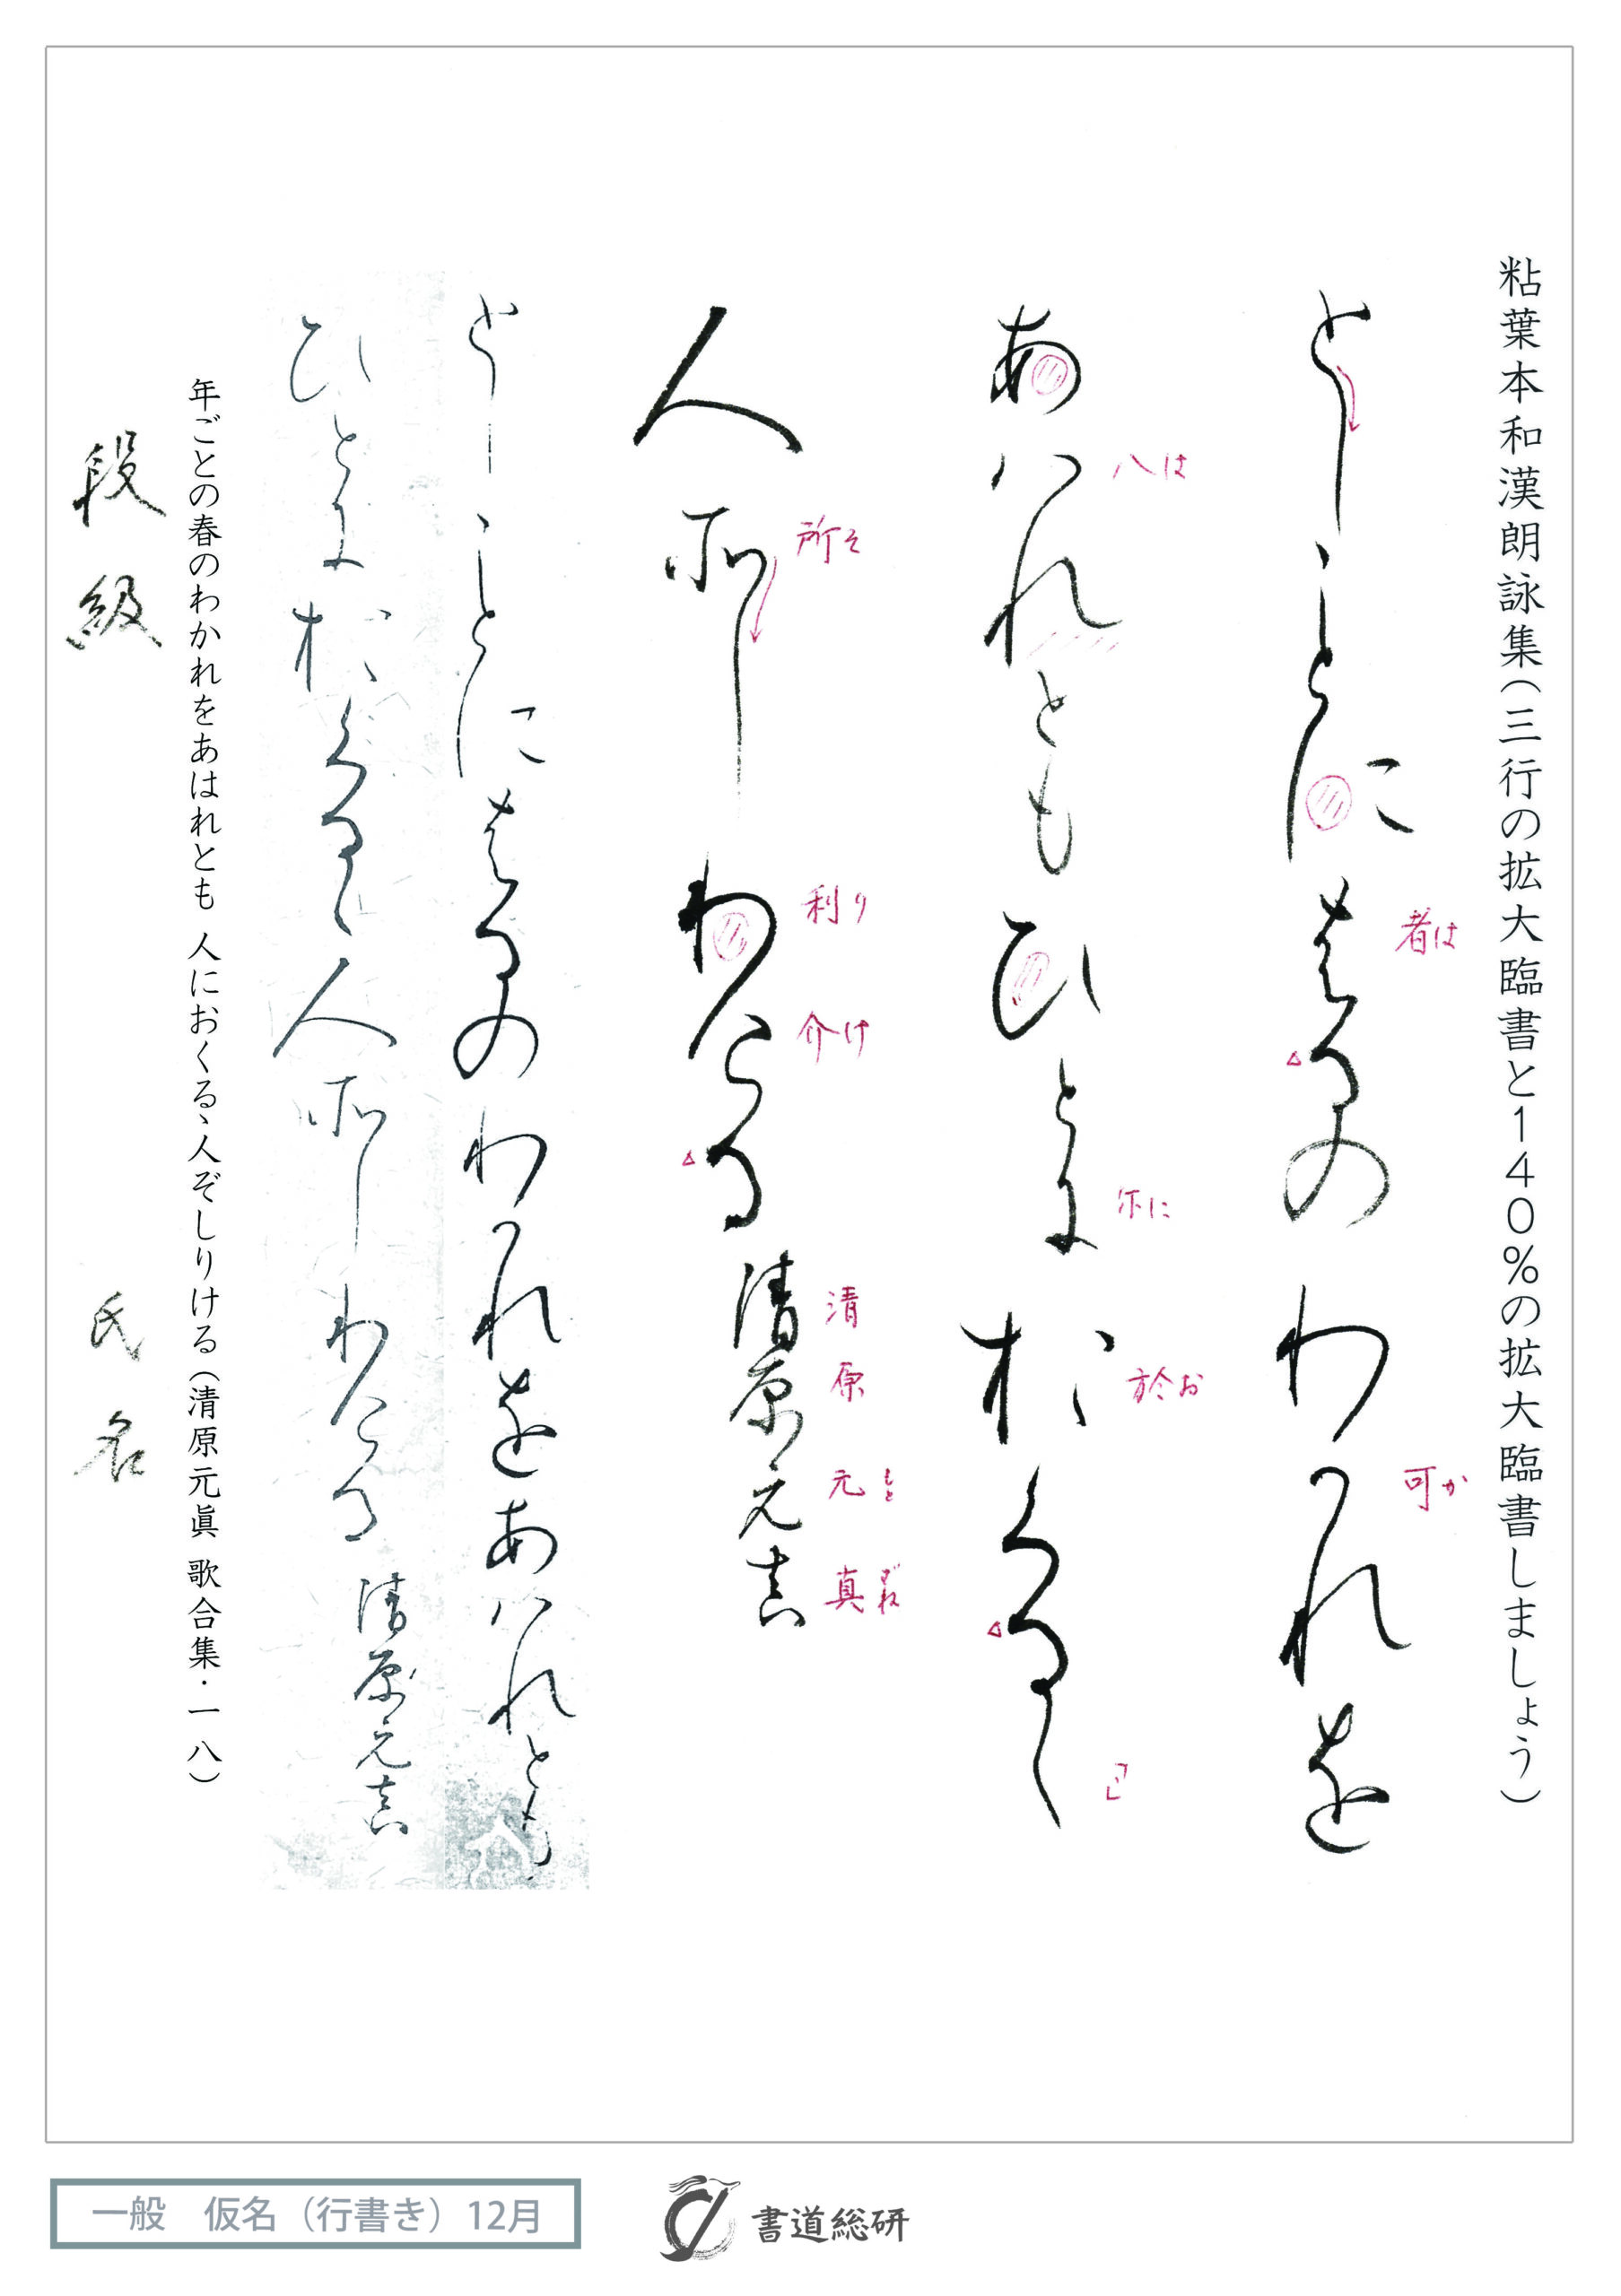 粘葉本和漢朗詠集(三行の拡大臨書と140%の拡大臨書しましょう)
者は
可か
としことにはるのわかれを
八は
尓に
於お
「ゝ」
あはれともひとにおくるゝ
所そ
利り
介け
清原元真
もとざね
人そしりける清原元真
としことにはるのわかれをあはれとも
ひとにおくるゝ人そしりける清原元真
年ごとの春のわかれをあはれとも 人におくるゝ人ぞしりける(清原元眞 歌合集・一八)
段級 氏名
一般 仮名(行書き)12月
書道総研